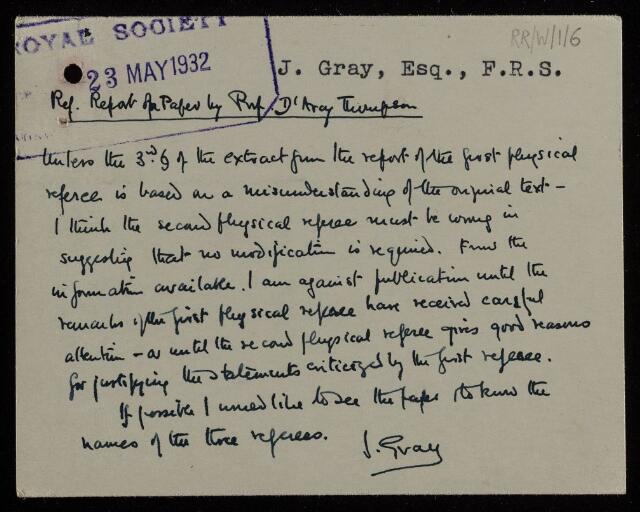 ROYAL SOCIETY
RR/W/1/6
23 MAY 1932
J. Gray, Esq., F.R.S.
Ref. Report on Paper by Prof. D'Arcy Thompson
Unless the 3rd § of the extract from the report of the first physical
referee is based on a misunderstanding of the original text –
I think the second physical referee must be wrong in
suggesting that no modification is required. From the
information available, I am against publication until the
remarks of the first physical referee have received careful
attention – or until the second physical referee gives good reasons
for justifying the statements criticized by the first referee.
If possible I would like to see the paper & to know the
names of the three referees.
J. Gray